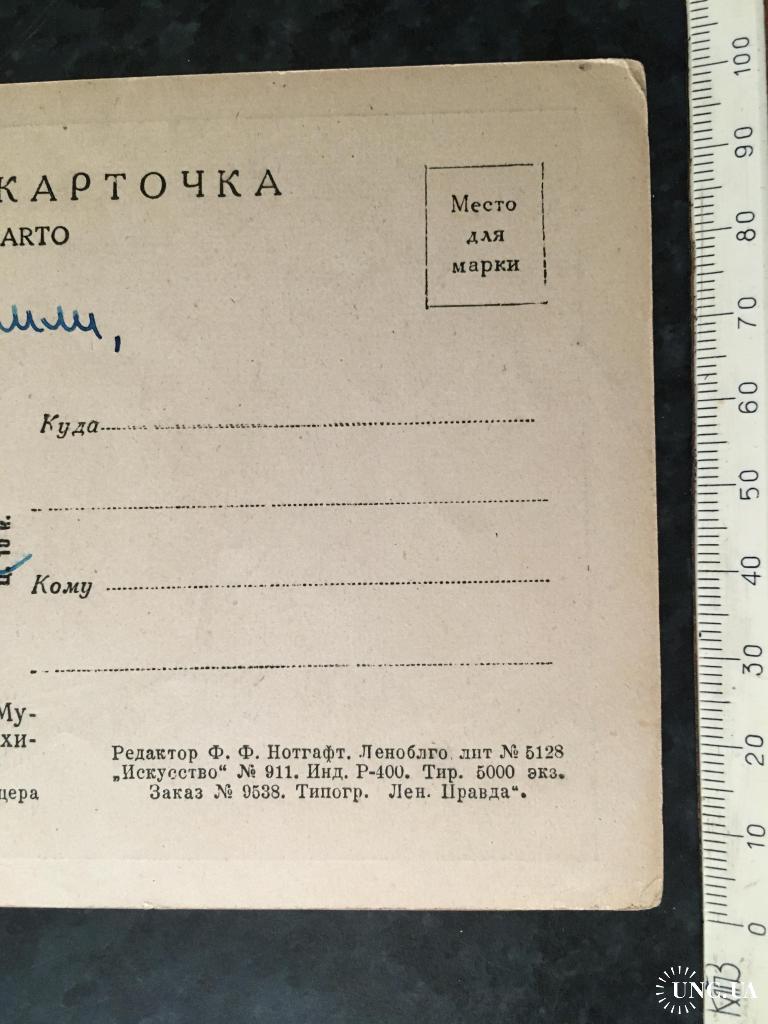 КАРТОЧКА
ARTO
Место
для
марки
Куда
Ц. 10 к.
Кому
Му-
хи-
цера
Редактор Ф. Ф. Нотгафт. Леноблгорлит № 5128
„Искусство“ № 911. Инд. Р-400. Тир. 5000 экз.
Заказ № 9538. Типогр. Лен. Правда“.
100
90
80
70
60
50
40
30
20
10
0
UNC.UA